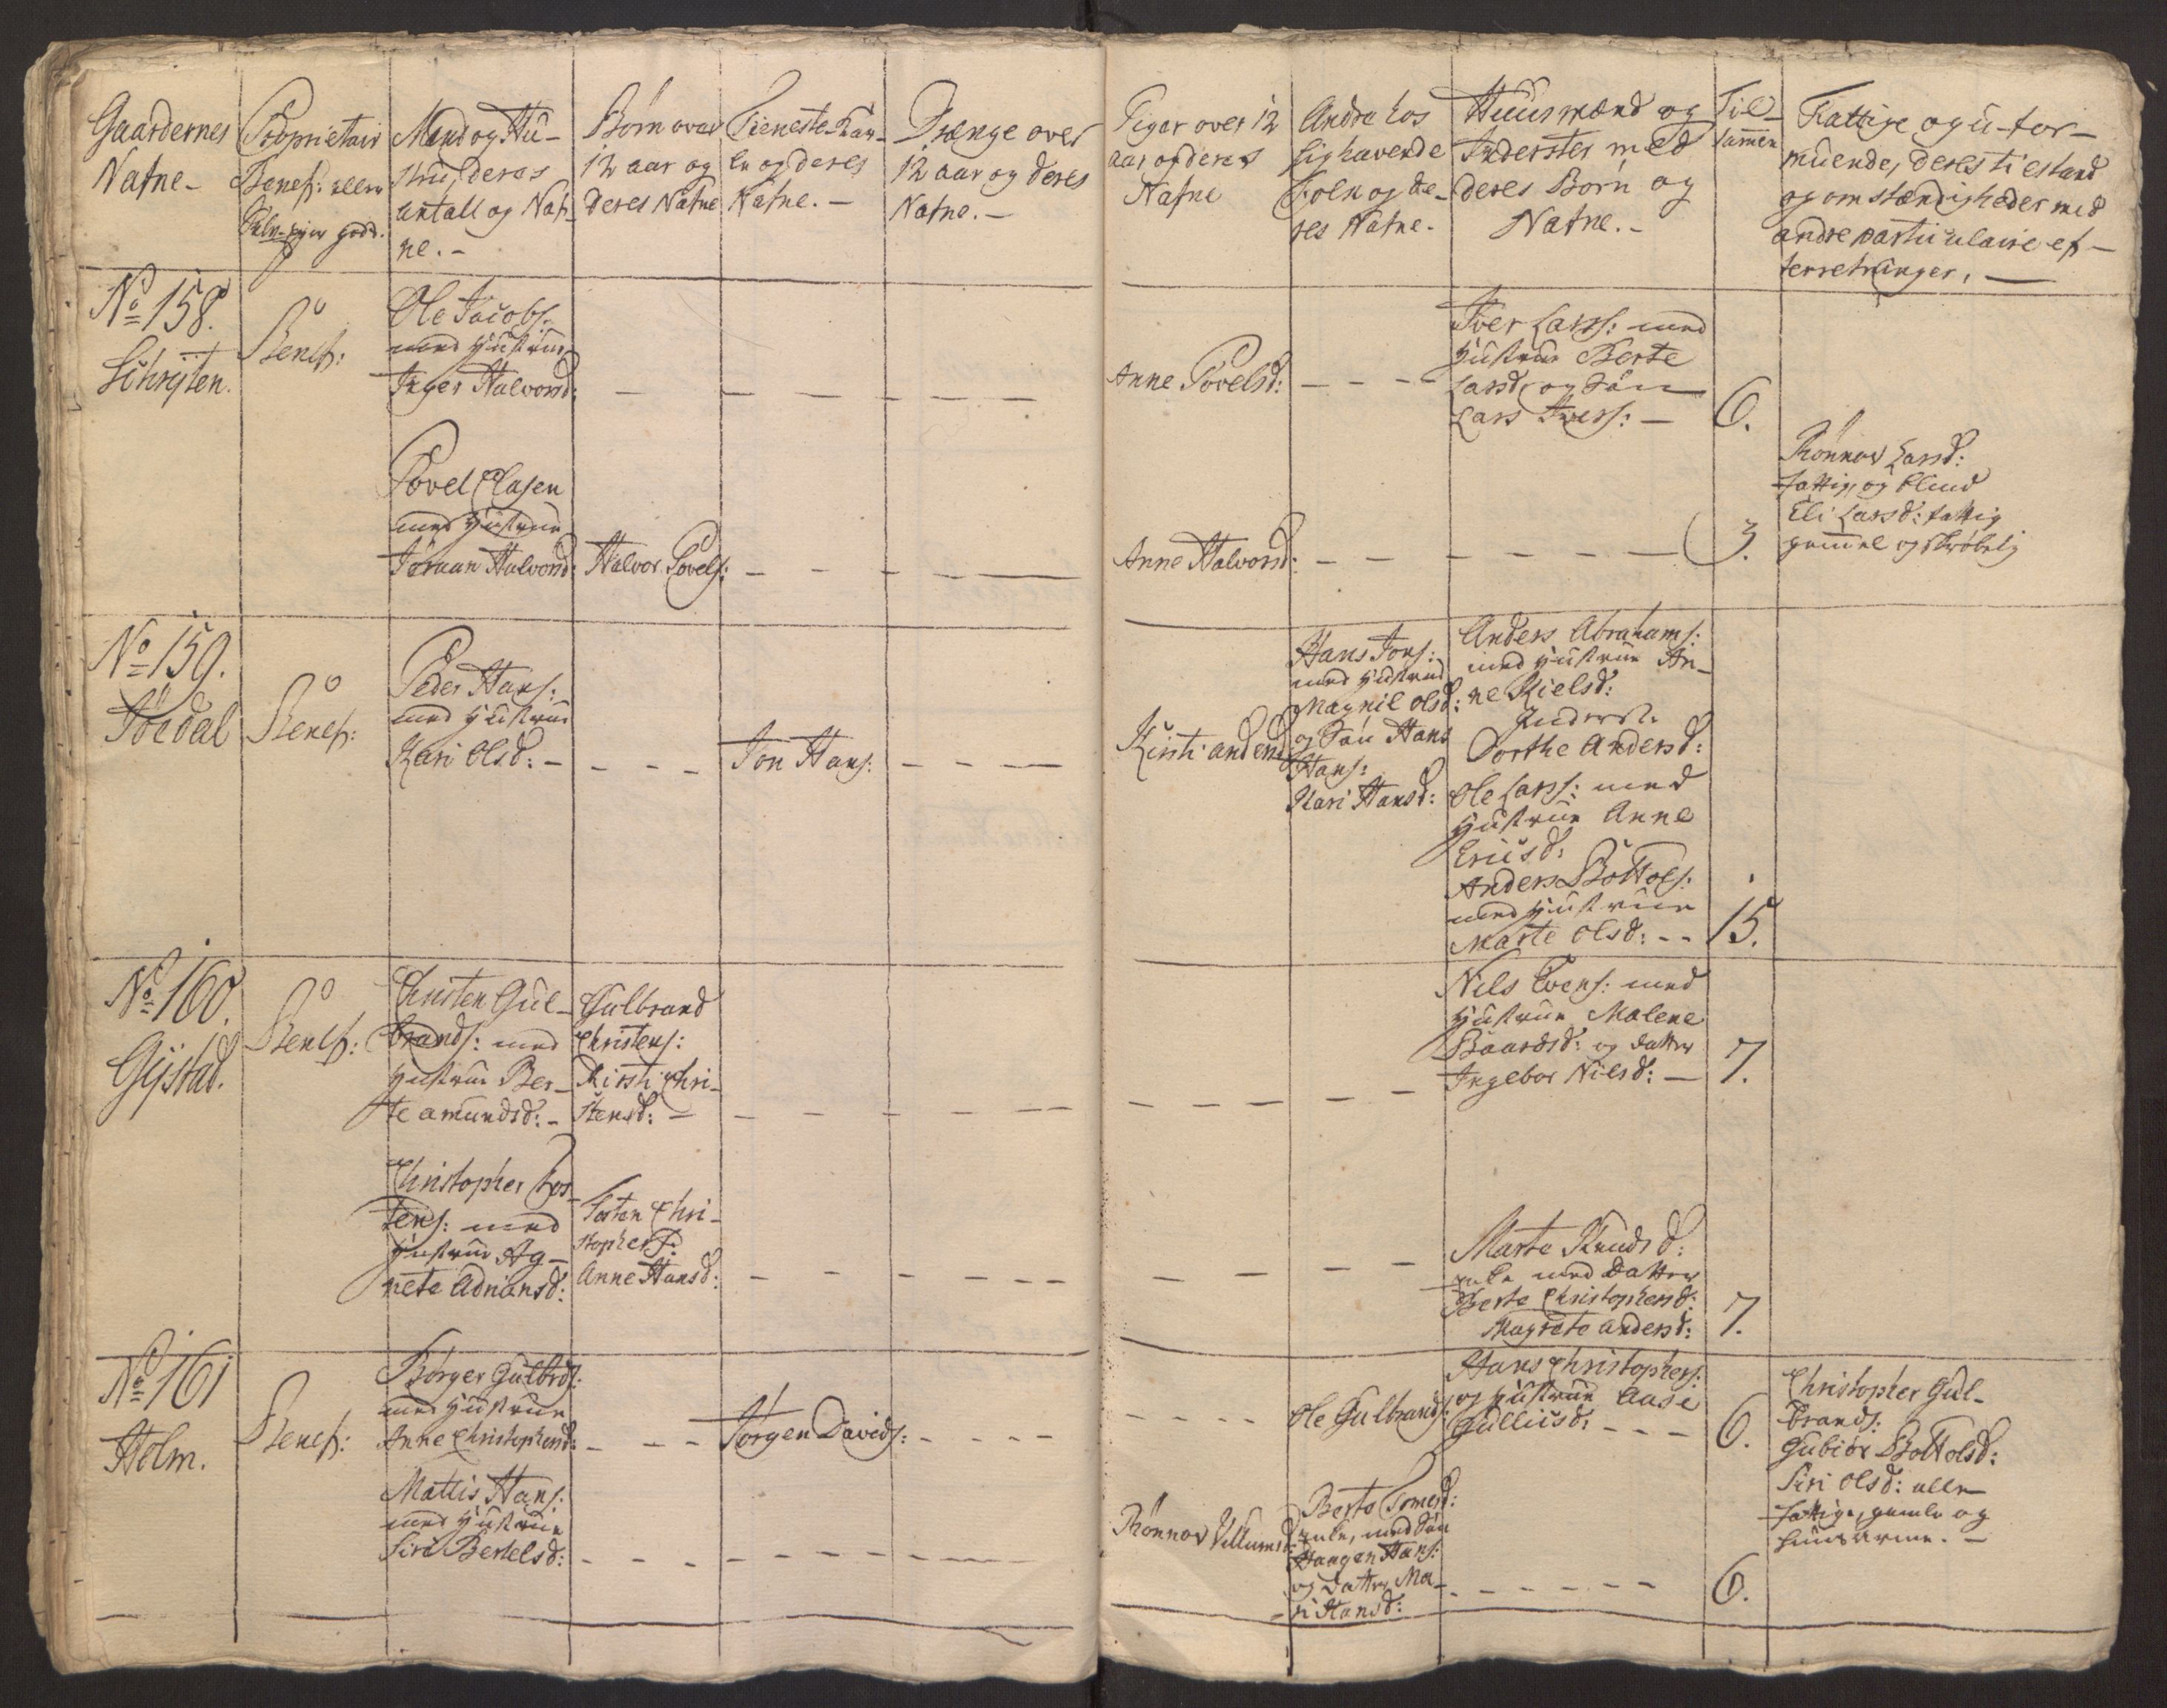 Gaardernes
Nafne-
Proprietair
Benef: eller
gods.
Mand og Hu-
stru, deres
antall og Naf-
ne.-
Børn over
12 aar og
deres Nafne
Tieneste-Kar-
le og deres
Nafne.-
Drænge over
12 aar og deres
Nafne.-
Piger over 12
aar og deres
Nafne
Andre hos
sig havende
Folk og de-
res Nafne.
Huusmænd og
Inderster med
deres Børn og
Nafne.-
Til-
sammen
Fattige og u-for-
muende, deres tilstand
og omstændigheder med
andre particulaire ef-
terretninger,
No 158.
Benef:
Ole Jacobs:
med Hustrue
Inger Halvorsd:
Anne Povelsd:
Iver Larss: med
Hustrue Berte
Larsd: og Søn
Lars Ivers:
6.
Povel Olasen
med Hustrue
Jøraan Halvorsd:
Halvor Povels:
Anne Halvorsd:
3.
Rønnov Larsd:
fattig og blind
Eli Larsd: fattig
gammel og skrøbelig
No 159.
Benef:
Peder Hans:
med Hustrue
Kari Olsd:
Jon Hans:
Kirsti
Hans Jons:
med Hustrue
Magnil Olsd:
og Søn Hans
Hans:
Kari Hansd:
Anders Abrahams:
med Hustrue An-
ne Kielsd:
Inderst:
Dorthe Andersd:
Ole Larss: med
Hustrue Anne
Ericsd:
Anders Bottols:
med Hustrue
Marte Olsd:
15.
No 160.
Gijstad.
Benef:
Christen Gul-
brands: med
Hustrue Ber-
te Amundsd:
Gulbrand
Christens:
Kirsti Chri-
stensd:
Nils Evens: med
Hustrue Malene
Baardsd: og datter
Ingebor Nilsd:
7.
Christopher Tos-
tens: med
Hustrue Ag-
nete Adriansd:
Tosten Chri-
stophers:
Anne Hansd:
Marte Knudsd:
enke med Datter
Berte Christophersd:
Magrete Andersd:
7.
No 161
Holm.
Benef:
Børger Gulbrds:
med Hustrue
Anne Christophersd:
Jørgen Davids:
Ole Gulbrands:
Hans Christophers:
og Hustrue Aase
Gullicsd:
6.
Christopher Gul-
brands:
Gubiør Bottolsd:
Siri Olsd: alle
fattige, gamle og
huusarme.-
Mattis Hans:
med Hustrue
Siri Bertelsd:
Rønnov Villumsd:
Berte
enke, med Søn
Haagen Hans:
og Datter Ma-
ri Hansd:
6.